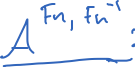 A Fn, Fn⁻¹ :